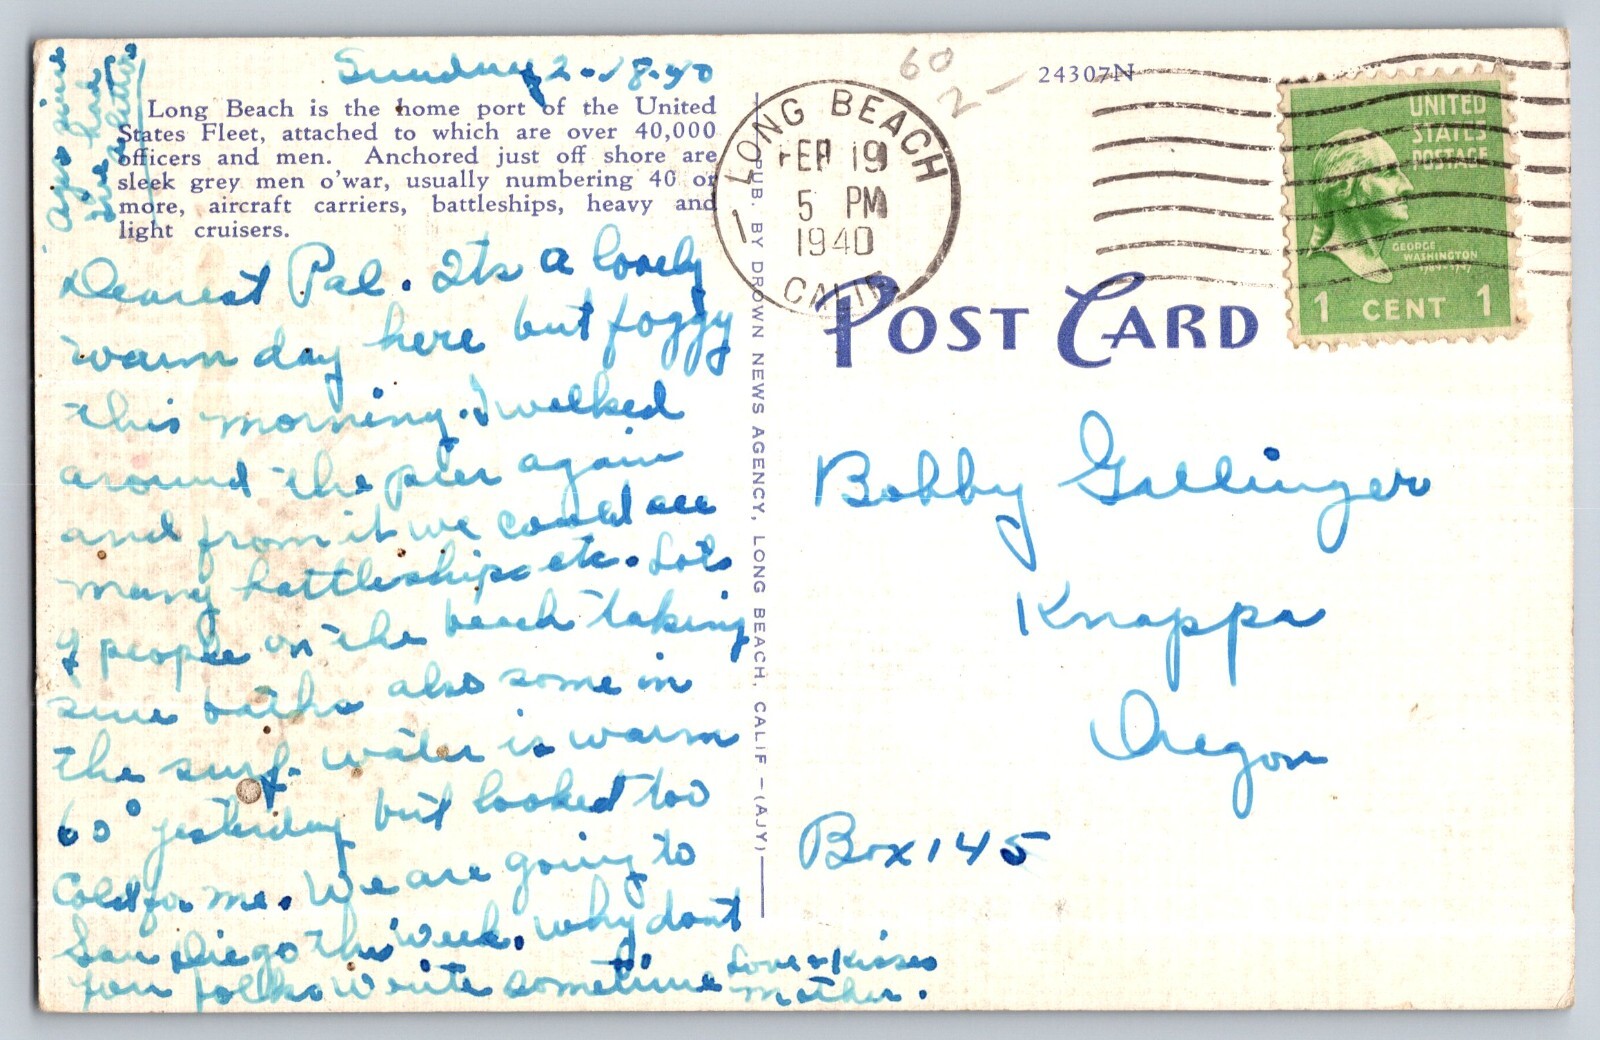 Sunday 2-18-40
Long Beach is the home port of the United
States Fleet, attached to which are over 40,000
officers and men. Anchored just off shore are
sleek grey men o'war, usually numbering 40 or
more, aircraft carriers, battleships, heavy and
light cruisers.
Dearest Pal. Its a lovely
warm day here but foggy
this morning. I walked
around the pier again
and from it we could see
many battleships etc. Lots
of people on the beach taking
sun baths also some in
the surf. water is warm
60° yesterday but looked too
Cold for me. We are going to
San Diego this week. why dont
you folks write sometime
Love & Kisses
Mother.
PUB. BY DROWN NEWS AGENCY, LONG BEACH, CALIF — (AJY)
60
2-
24307N
LONG BEACH
FEB 19
5 PM
1940
CALIF
UNITED
STATES
POSTAGE
GEORGE
WASHINGTON
1789-1797
1 CENT 1
POST CARD
Bobby Gallinger
Knappa
Oregon
Box 145